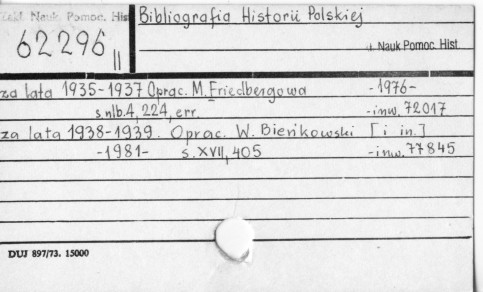 Zakł. Nauk. Pomoc. Hist
Bibliografia Historii Polskiej
62296 II
Nauk Pomoc. Hist
za lata 1935-1937 Oprac. M. Friedbergowa -1976-
s. nlb. 4, 224, err. -inw. 72017
za lata 1938-1939. Oprac. W. Bieńkowski [i in.]
-1981- s. XVII, 405 -inw. 77845
DUJ 897/73. 15000